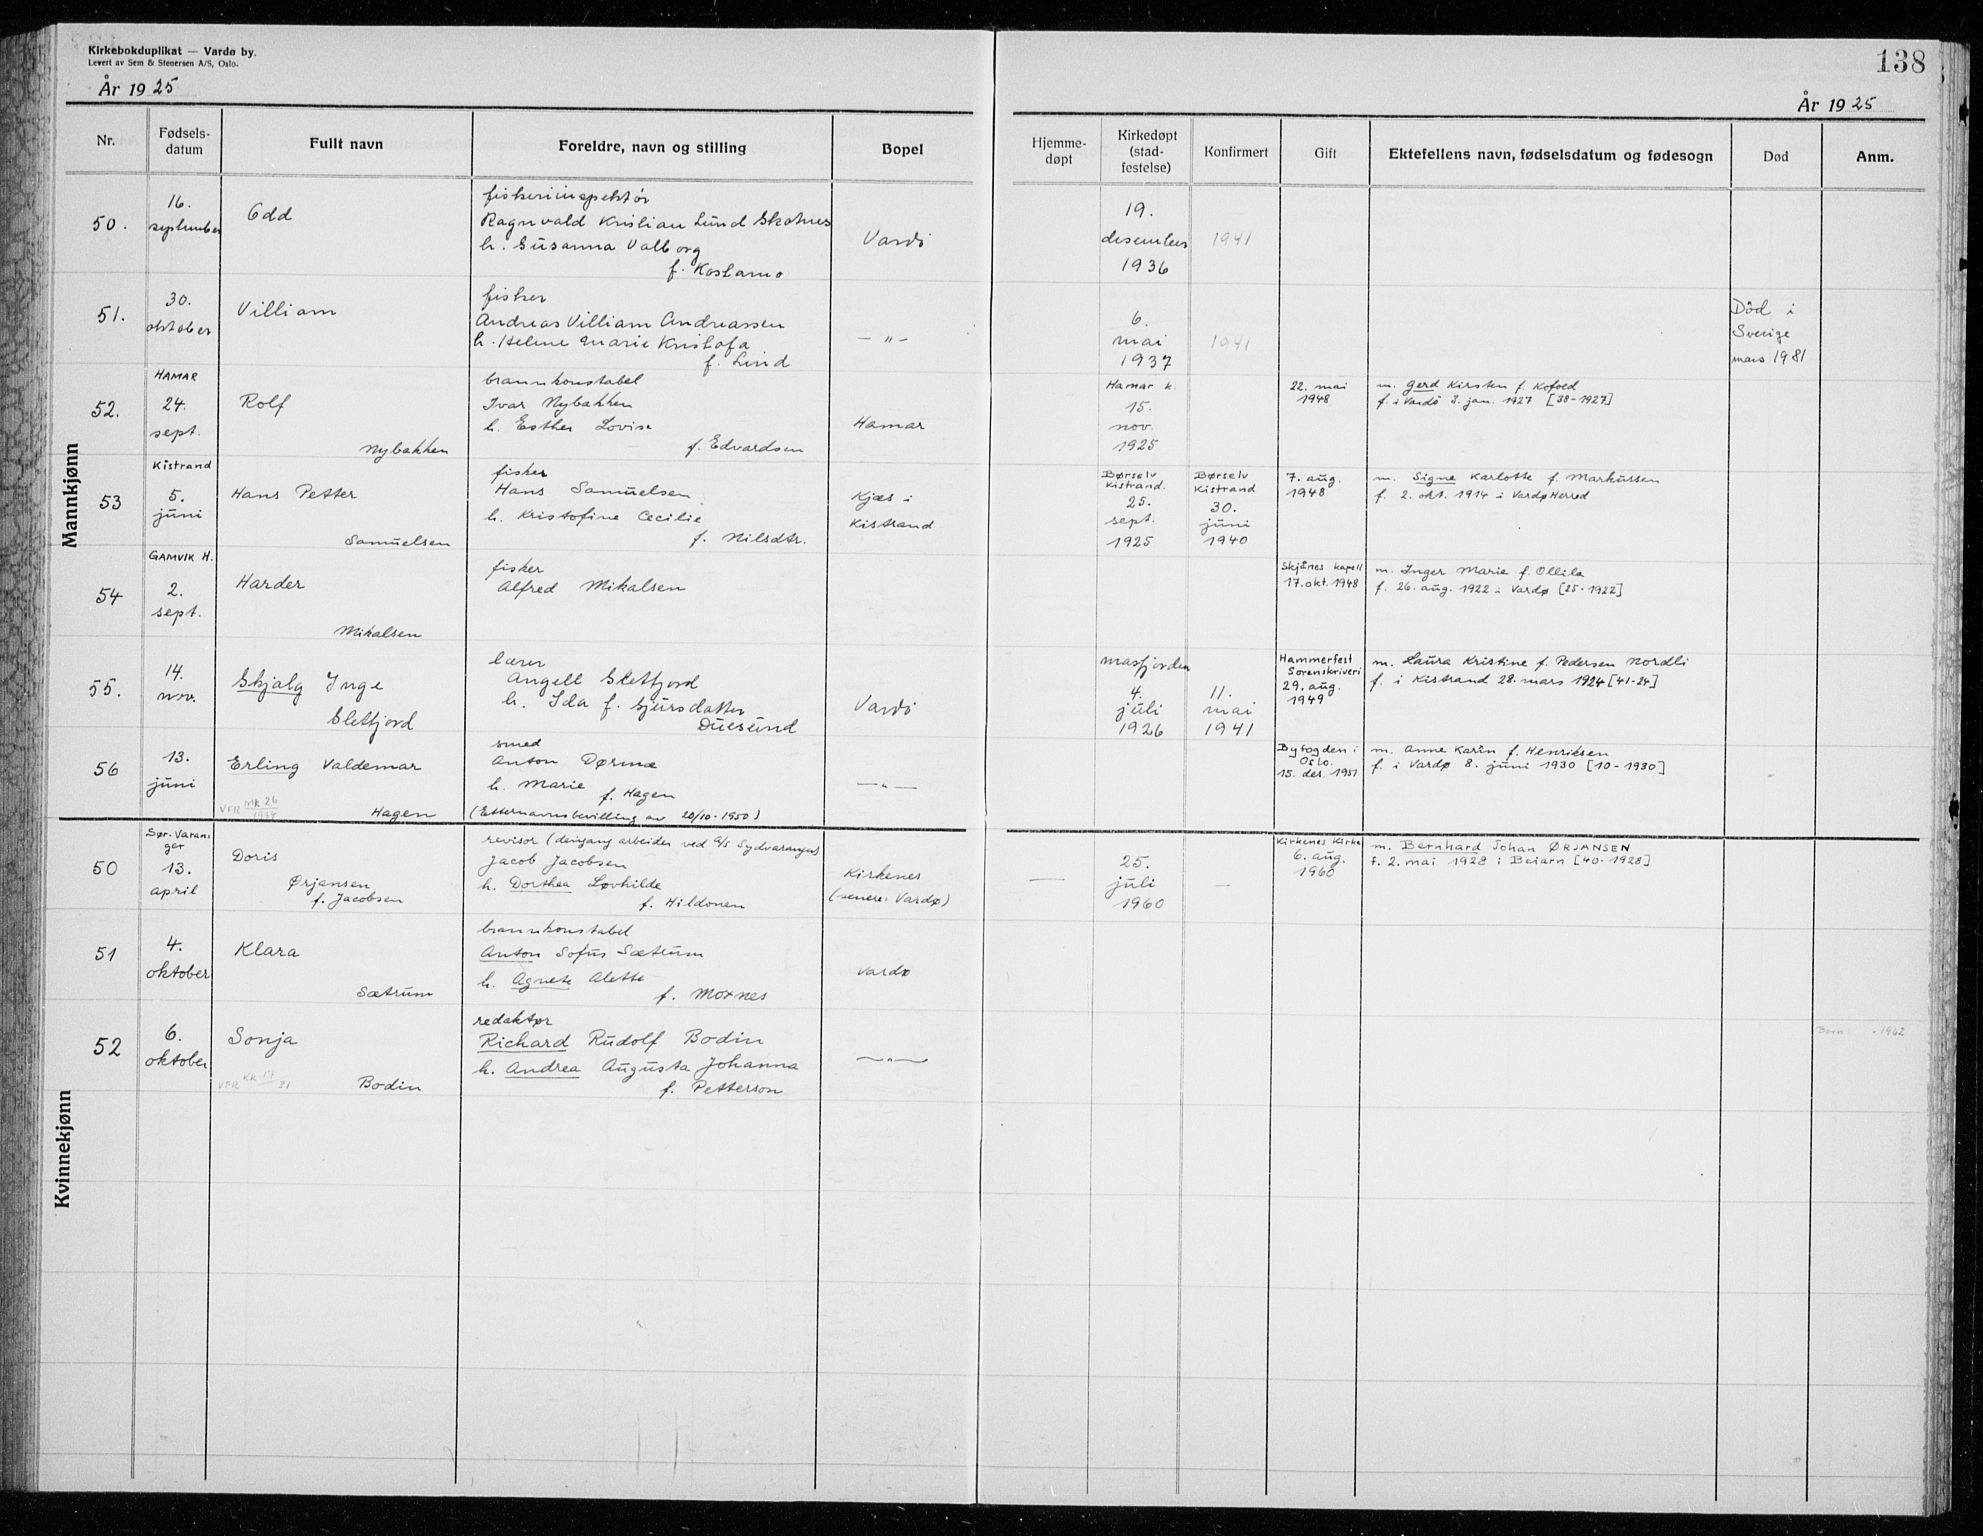 Kirkebokduplikat — Vardø by.
Levert av Sem & Stenersen A/S, Oslo.
År 1925
138
År 1925
Nr.
Fødsels-
datum
Fullt navn
Foreldre, navn og stilling
Bopel
Hjemme-
døpt
Kirkedøpt
(stad-
festelse)
Konfirmert
Gift
Ektefellens navn, fødselsdatum og fødesogn
Død
Anm.
Mannkjønn
50.
16.
september
Odd
fiskeriinspektör
Ragnvald Kristian Lund Skotnes
h. Susanna Valborg
f. Kostamo
Vardö
19.
desember
1936
1941
51.
30.
oktober
Villiam
fisker
Andreas Villiam Andreassen
h. Helene Marie Kristofa
f. Lind
— " —
6.
mai
1937
1941
Död i
Sverige
mars 1981
52.
HAMAR
24.
sept.
Rolf
Nybakken
brannkonstabel
Ivar Nybakken
h. Esther Lovise
f. Edvardsen
Hamar
Hamar k.
15.
nov.
1925
22. mai
1948
m. Gerd Kirsten f. Kofoed
f. i Vardö 3. jan. 1927 [38-1927]
53
Kistrand
5.
juni
Hans Petter
Samuelsen
fisker
Hans Samuelsen
h. Kristofine Cecilie
f. Nilsdtr.
Kjæs i
Kistrand
Børselv
Kistrand.
25.
sept.
1925
Børselv
Kistrand
30.
juni
1940
7. aug.
1948
m. Signe Karlotte f. Markussen
f. 2. okt. 1914 i Vardø Herred
54
GAMVIK H.
2.
sept.
Harder
Mikalsen
fisker
Alfred Mikalsen
Skjånes kapell
17. okt. 1948
m. Inger Marie f. Ollila
f. 26. aug. 1922 i Vardø [25-1922]
55.
14.
nov.
Skjalg Inge
Sletfjord
lærer
Angell Sletfjord
h. Ida f. Sjursdatter
Duesund
Vardö
Masfjorden
4.
juli
1926
11.
mai
1941
Hammerfest
Sorenskriveri
29. aug.
1949
m. Laura Kristine f. Pedersen Nordli
f. i Kistrand 28. mars 1924 [41-24]
56
13.
juni
Erling Valdemar
VFR MK 26
1937
Hagen
smed
Anton Dørmæ
h. Marie f. Hagen
(Etternavnsbevilling av 20/10-1950)
— " —
Byfogden i
Oslo.
15. des. 1951
m. Anne Karin f. Henriksen
f. i Vardø 8. juni 1930 [10-1930]
Kvinnekjønn
50
Sør-Varan-
ger
13.
april
Doris
Ørjansen
f. Jacobsen
revisor (dengang arbeider ved A/S Sydvaranger)
Jacob Jacobsen
h. Dorthea Løvhilde
f. Hildonen
Kirkenes
(senere: Vardø)
—
25.
juli
1960
—
Kirkenes Kirke
6. aug.
1960
m. Bernhard Johan ØRJANSEN
f. 2. mai 1928 i Beiarn [40-1928]
51
4.
oktober
Klara
Sætrum
brannkonstabel
Anton Sofus Sætrum
h. Agnete Alette
f. Moxnes
Vardø
52
6.
oktober
Sonja
VFR KK 17
21
Bodin
redaktør
Richard Rudolf Bodin
h. Andrea Augusta Johanna
f. Petterson
— " —
Barn -1962